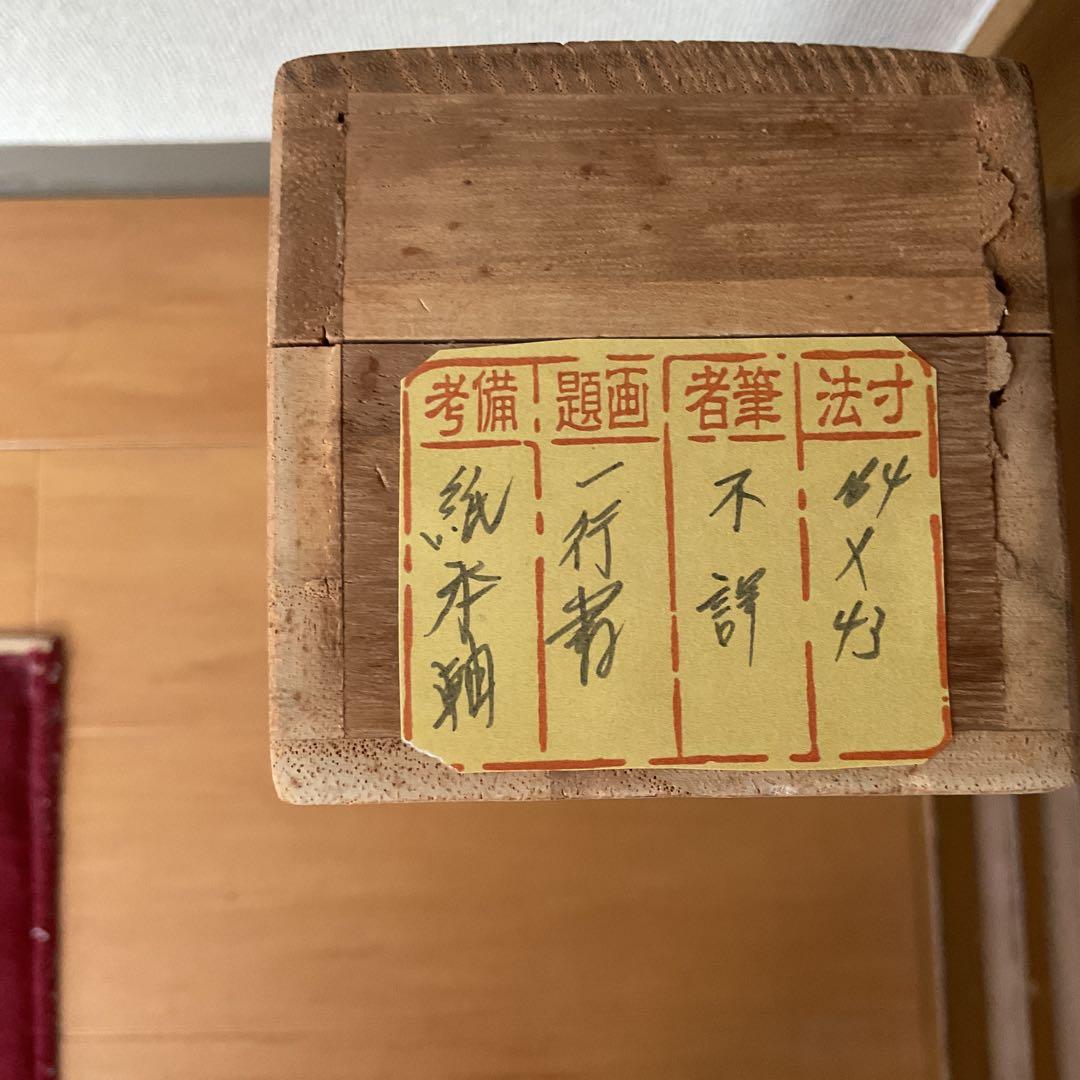 寸法
X
43
筆者
不詳
画題
一行書
備考
紙本軸